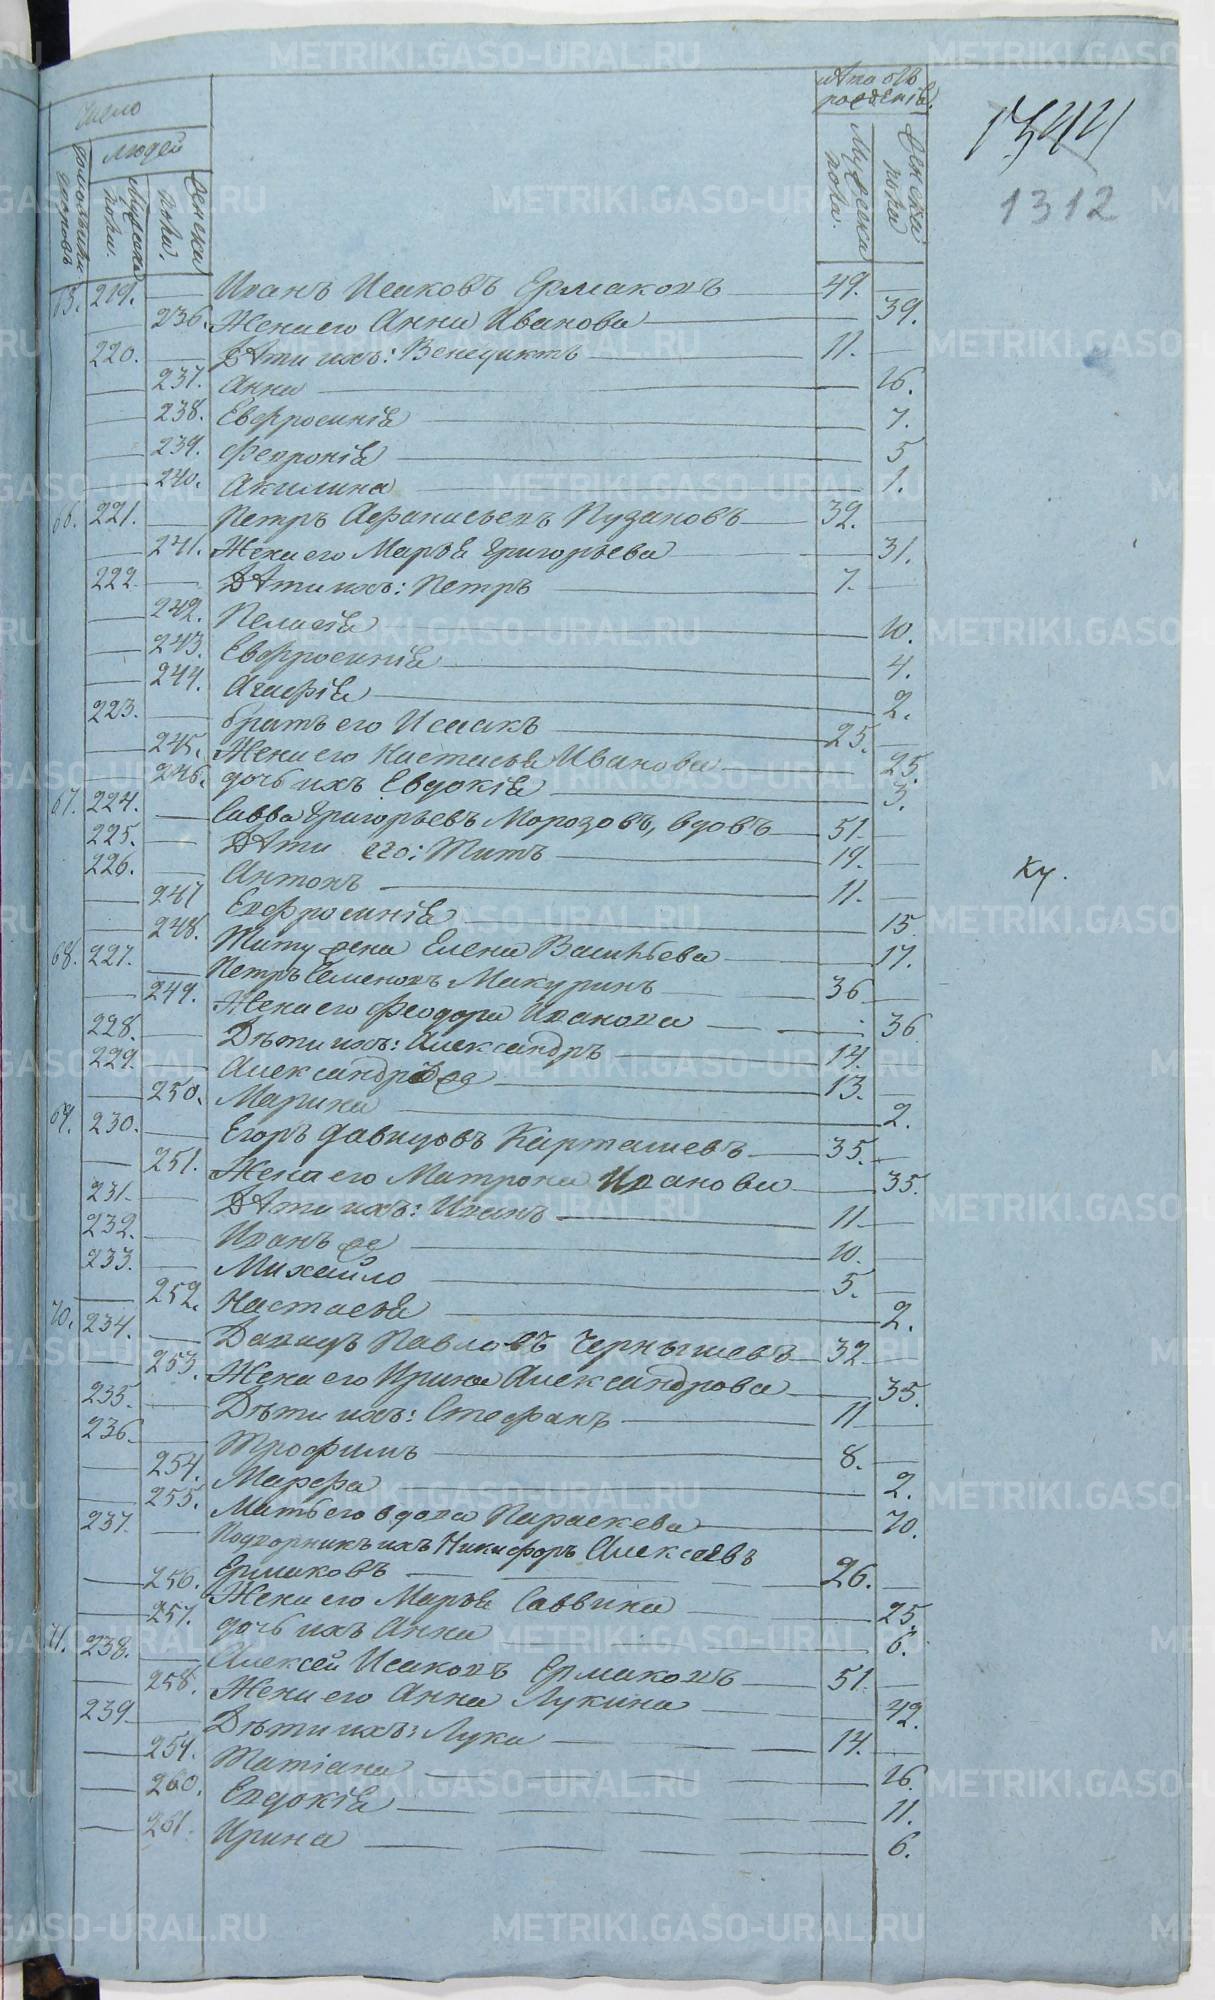 Число
людей
Лѣта отъ рожденія.
домовъ
Мужска пола.
Женска пола.
Мужска пола.
Женска пола
1344
1312
65. 219. Иванъ Исаковъ Ермаковъ 49.
236. Жена его Анна Иванова 39.
220. Дѣти ихъ: Венедиктъ 11.
237. Анна 16.
238. Евфросинія 7.
239. Февронія 5
240. Акилина 1.
66. 221. Петръ Афанасьевъ Пузановъ 32.
241. Жена его Марья Григорьева 31.
222. Дѣти ихъ: Петръ 7.
242. Пелагія 10.
243. Евфросинія 4.
244. Агафія 2.
223. братъ его Исаакъ 25.
245. Жена его Настасья Иванова 25.
246. дочь ихъ Евдокія 3.
67. 224. Савва Григорьевъ Морозовъ, вдовъ 51.
225. Дѣти его: Титъ 19.
226. Антонъ 11.
247 Евфросинія 15.
248. Титу жена Елена Васильева 17.
68. 227. Петръ Семеновъ Макуринъ 36
249. Жена его Феодора Иванова 36
228. Дѣти ихъ: Александръ 14.
229. Александръ же 13.
250. Марина 2.
69. 230. Егоръ Давидовъ Карташевъ 35.
251. Жена его Матрона Иванова 35.
231. Дѣти ихъ: Иванъ 11
232. Иванъ же 10.
233. Михайло 5.
252. Настасья 2.
70. 234. Давидъ Павловъ Чернышевъ 32
253. Жена его Ирина Александрова 35.
235. Дѣти ихъ: Стефанъ 11
236. Трофимъ 8.
254. Марфа 2.
255. Мать его вдова Параскева 70.
237. Подворникъ ихъ Никифоръ Алексѣевъ
Ермаковъ 26.
256. Жена его Марья Саввина 25.
257. дочь ихъ Анна 6.
71. 238. Алексей Исаковъ Ермаковъ 51.
258. Жена его Анна Лукина 42.
239. Дѣти ихъ: Лука 14.
259. Татіана 16.
260. Евдокія 11.
261. Ирина 6.
Ку.
METRIKI.GASO-URAL.RU